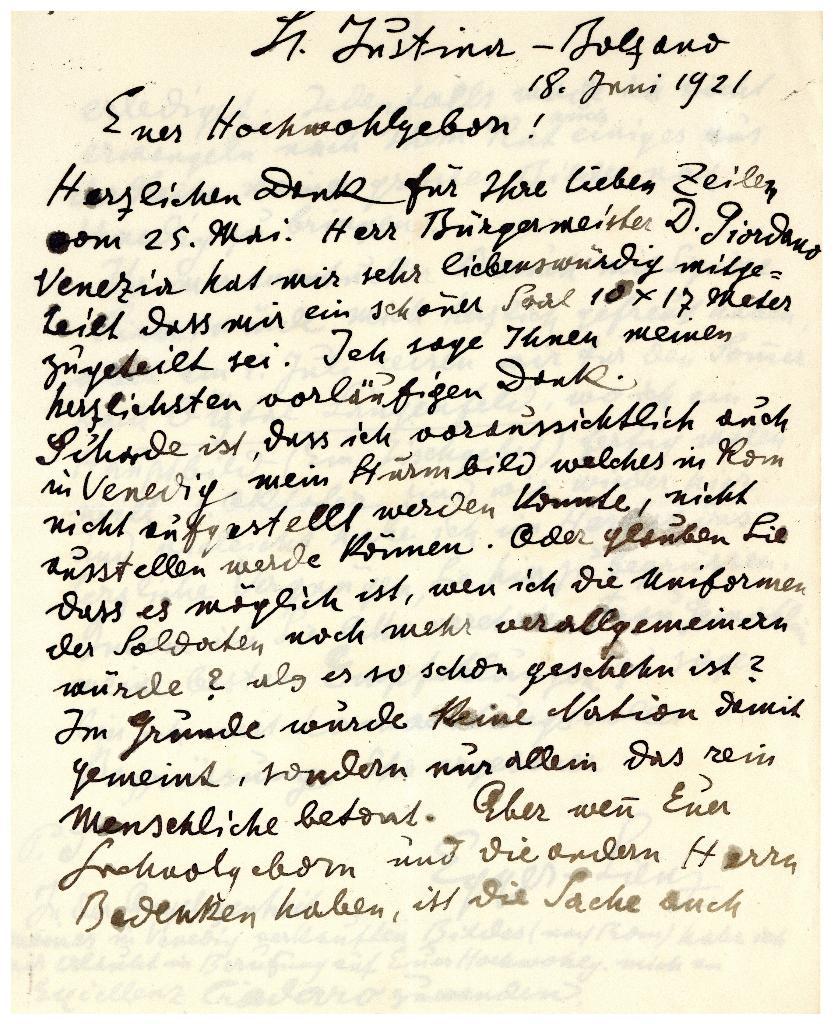 St. Justina – Bolzano
18. Juni 1921
Euer Hochwohlgeborn!
Herzlichen Dank für Ihre lieben Zeilen
vom 25. Mai. Herr Bürgermeister D. Giordano
Venezia hat mir sehr liebenswürdig mitge=
teilt dass mir ein schöner Saal 10 x 17 Meter
zugeteilt sei. Ich sage Ihnen meinen
herzlichsten vorläufigen Dank.
Schade ist, dass ich voraussichtlich auch
in Venedig mein Sturmbild welches in Rom
nicht aufgestellt werden konnte, nicht
ausstellen werde können. Oder glauben Sie
dass es möglich ist, wen ich die Uniformen
der Soldaten noch mehr verallgemeinern
würde? als es so schon geschehn ist?
Im Grunde wurde keine Nation damit
gemeint, sondern nur allein das rein
Menschliche betont. Aber wen̄ Euer
Hochwolgeborn und die andern Herrn
Bedenken haben, ist die Sache auch